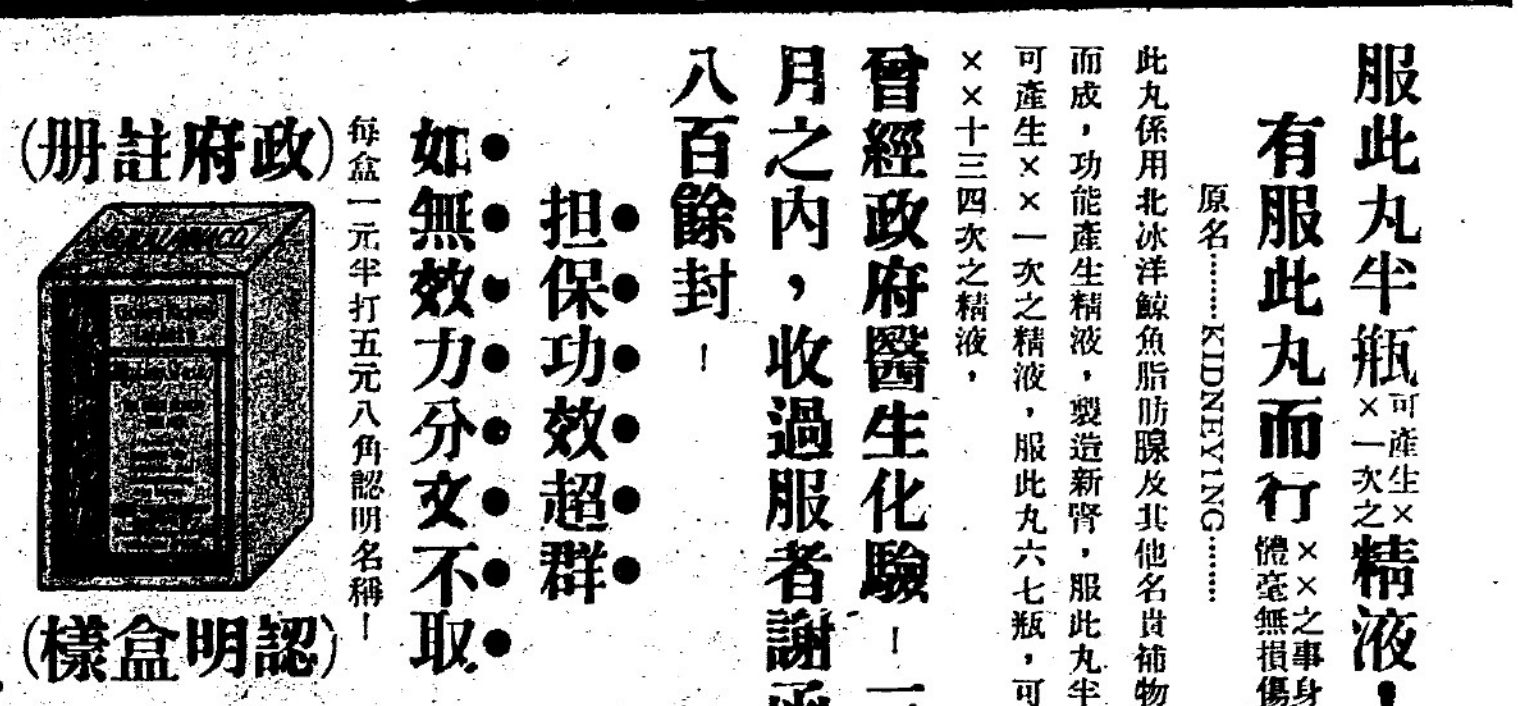 服此丸半瓶可產生××一次之精液！
有服此丸而行××之事身體毫無損傷
原名………KIDNEY1NG………
此丸係用北冰洋鯨魚脂肪腺及其他名貴補物
而成，功能產生精液，製造新腎，服此丸半
可產生××一次之精液，服此丸六七瓶，可
××十三四次之精液，
曾經政府醫生化驗！一
月之內，收過服者謝函
八百餘封！
担保功效超群
如無效力分文不取
每盒一元半打五元八角認明名稱！
(政府註册)
(認明盒樣)